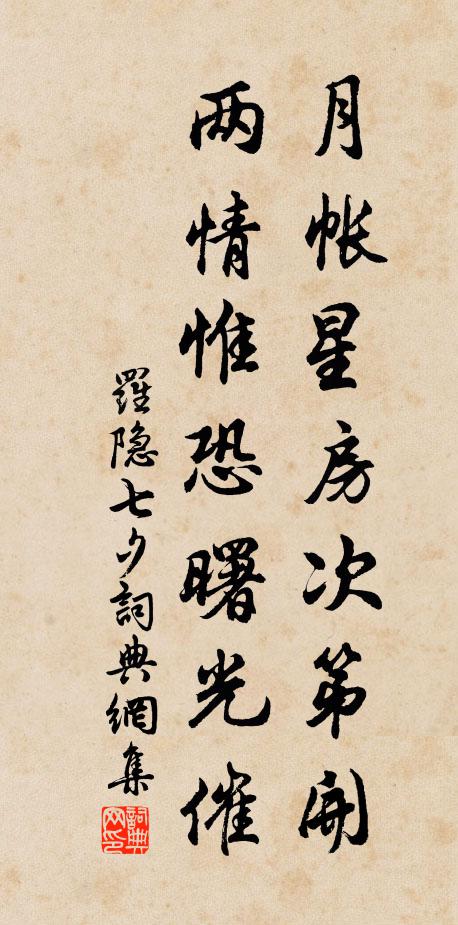 月帐星房次第開
两情惟恐曙光催
羅隐七夕詞典網集
詞典网印